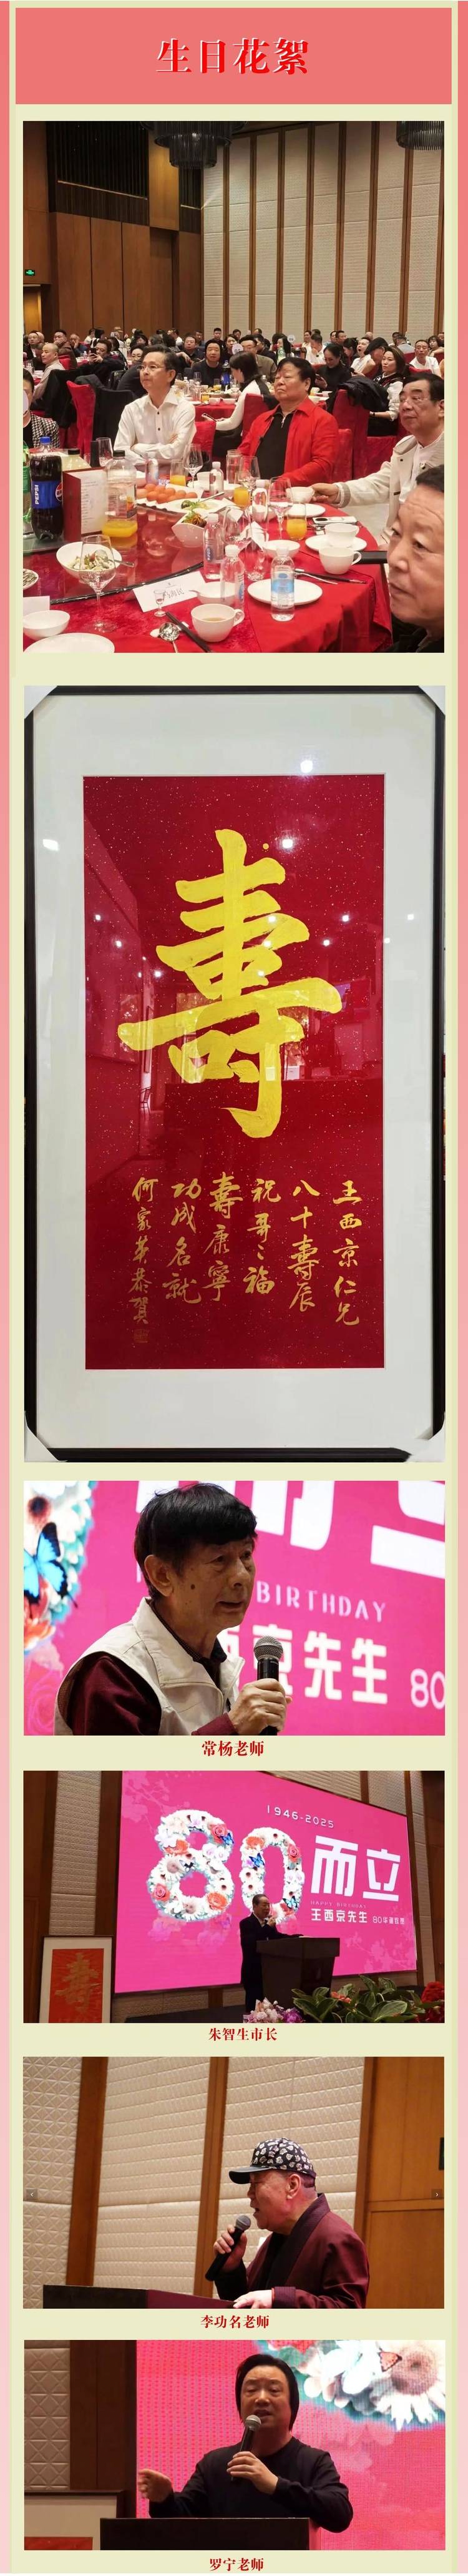 生日花絮
PEPSI
壽
王西京仁兄
八十壽辰
祝哥〻福
壽康寧
功成名就
何家英恭賀
BIRTHDAY
西京先生 80
常杨老师
1946-2025
80而立
HAPPY BIRTHDAY
王西京先生 80华诞
寿
朱智生市长
李功名老师
罗宁老师